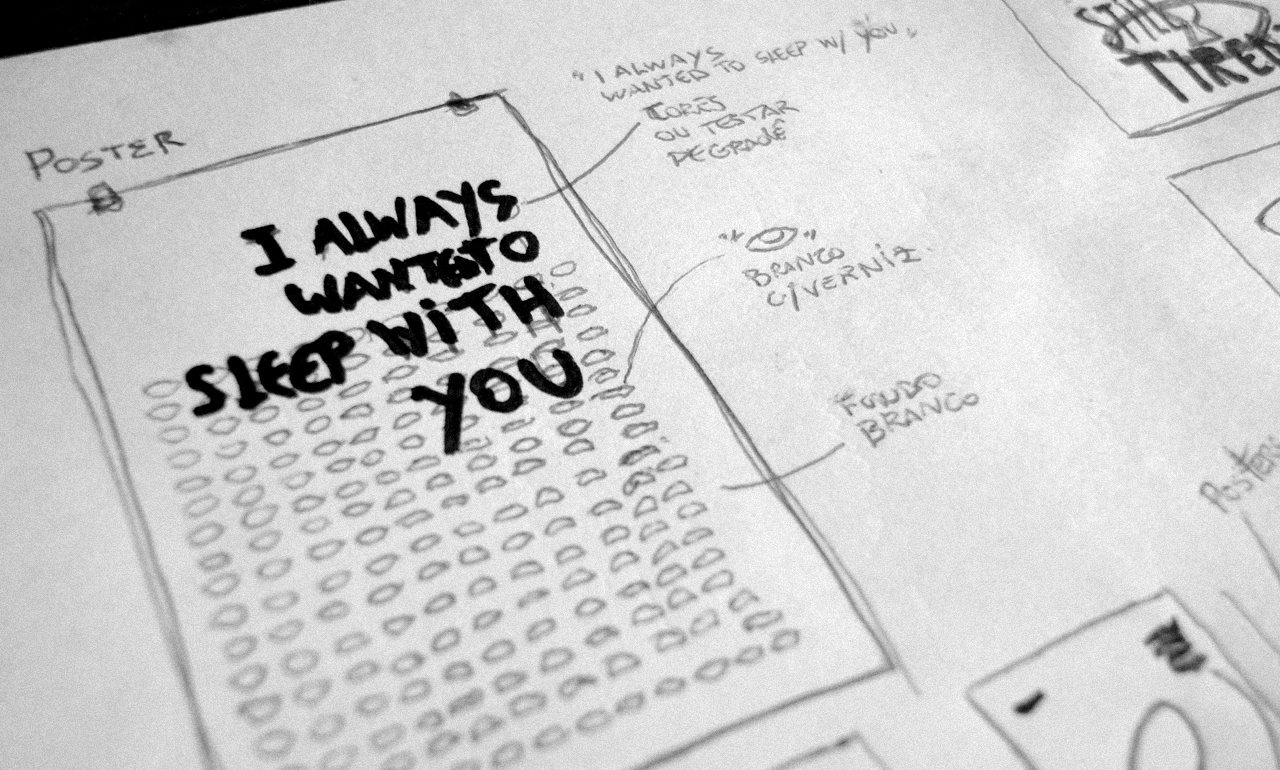 POSTER
I ALWAYS
WANTED TO
SLEEP WITH
YOU
"I ALWAYS
WANTED TO SLEEP W/ YOU"
CORES
OU TESTAR
DEGRADÊ
" "
BRANCO
C/VERNIZ
FUNDO
BRANCO
STILL
TIRED